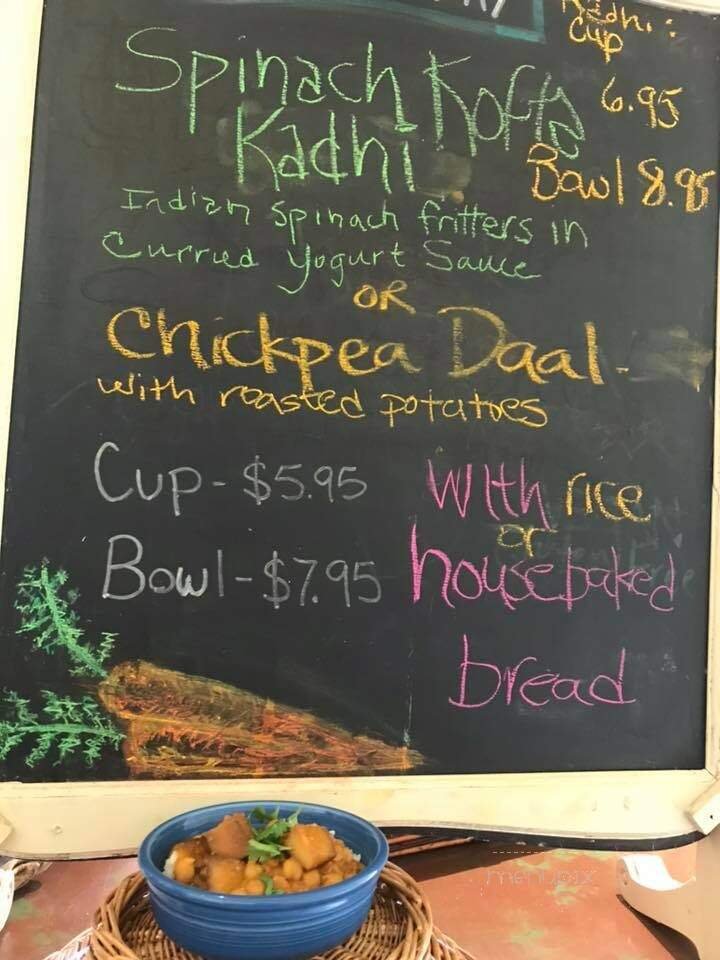 Kadhi:
Cup
6.95
Bowl 8.95
Spinach Kofta
Kadhi
Indian Spinach fritters in
Curried Yogurt Sauce
OR
Chickpea Daal
with roasted potatoes
Cup - $5.95
Bowl - $7.95
With rice
or
housebaked
bread
menupix